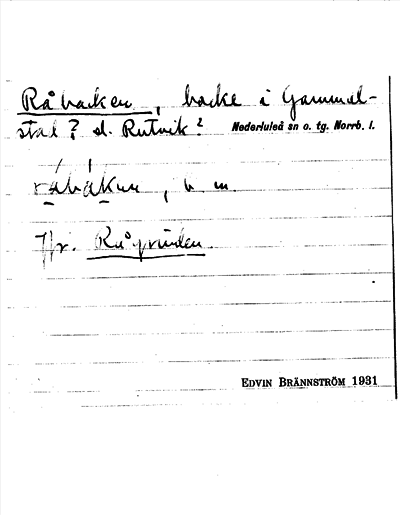 Råbacken, backe i Gammel-
stad? el. Rutvik? Nederluleå sn o. tg. Norrb. l.
råbakun, b m
Jfr. Rågrinden.
EDVIN BRÄNNSTRÖM 1931